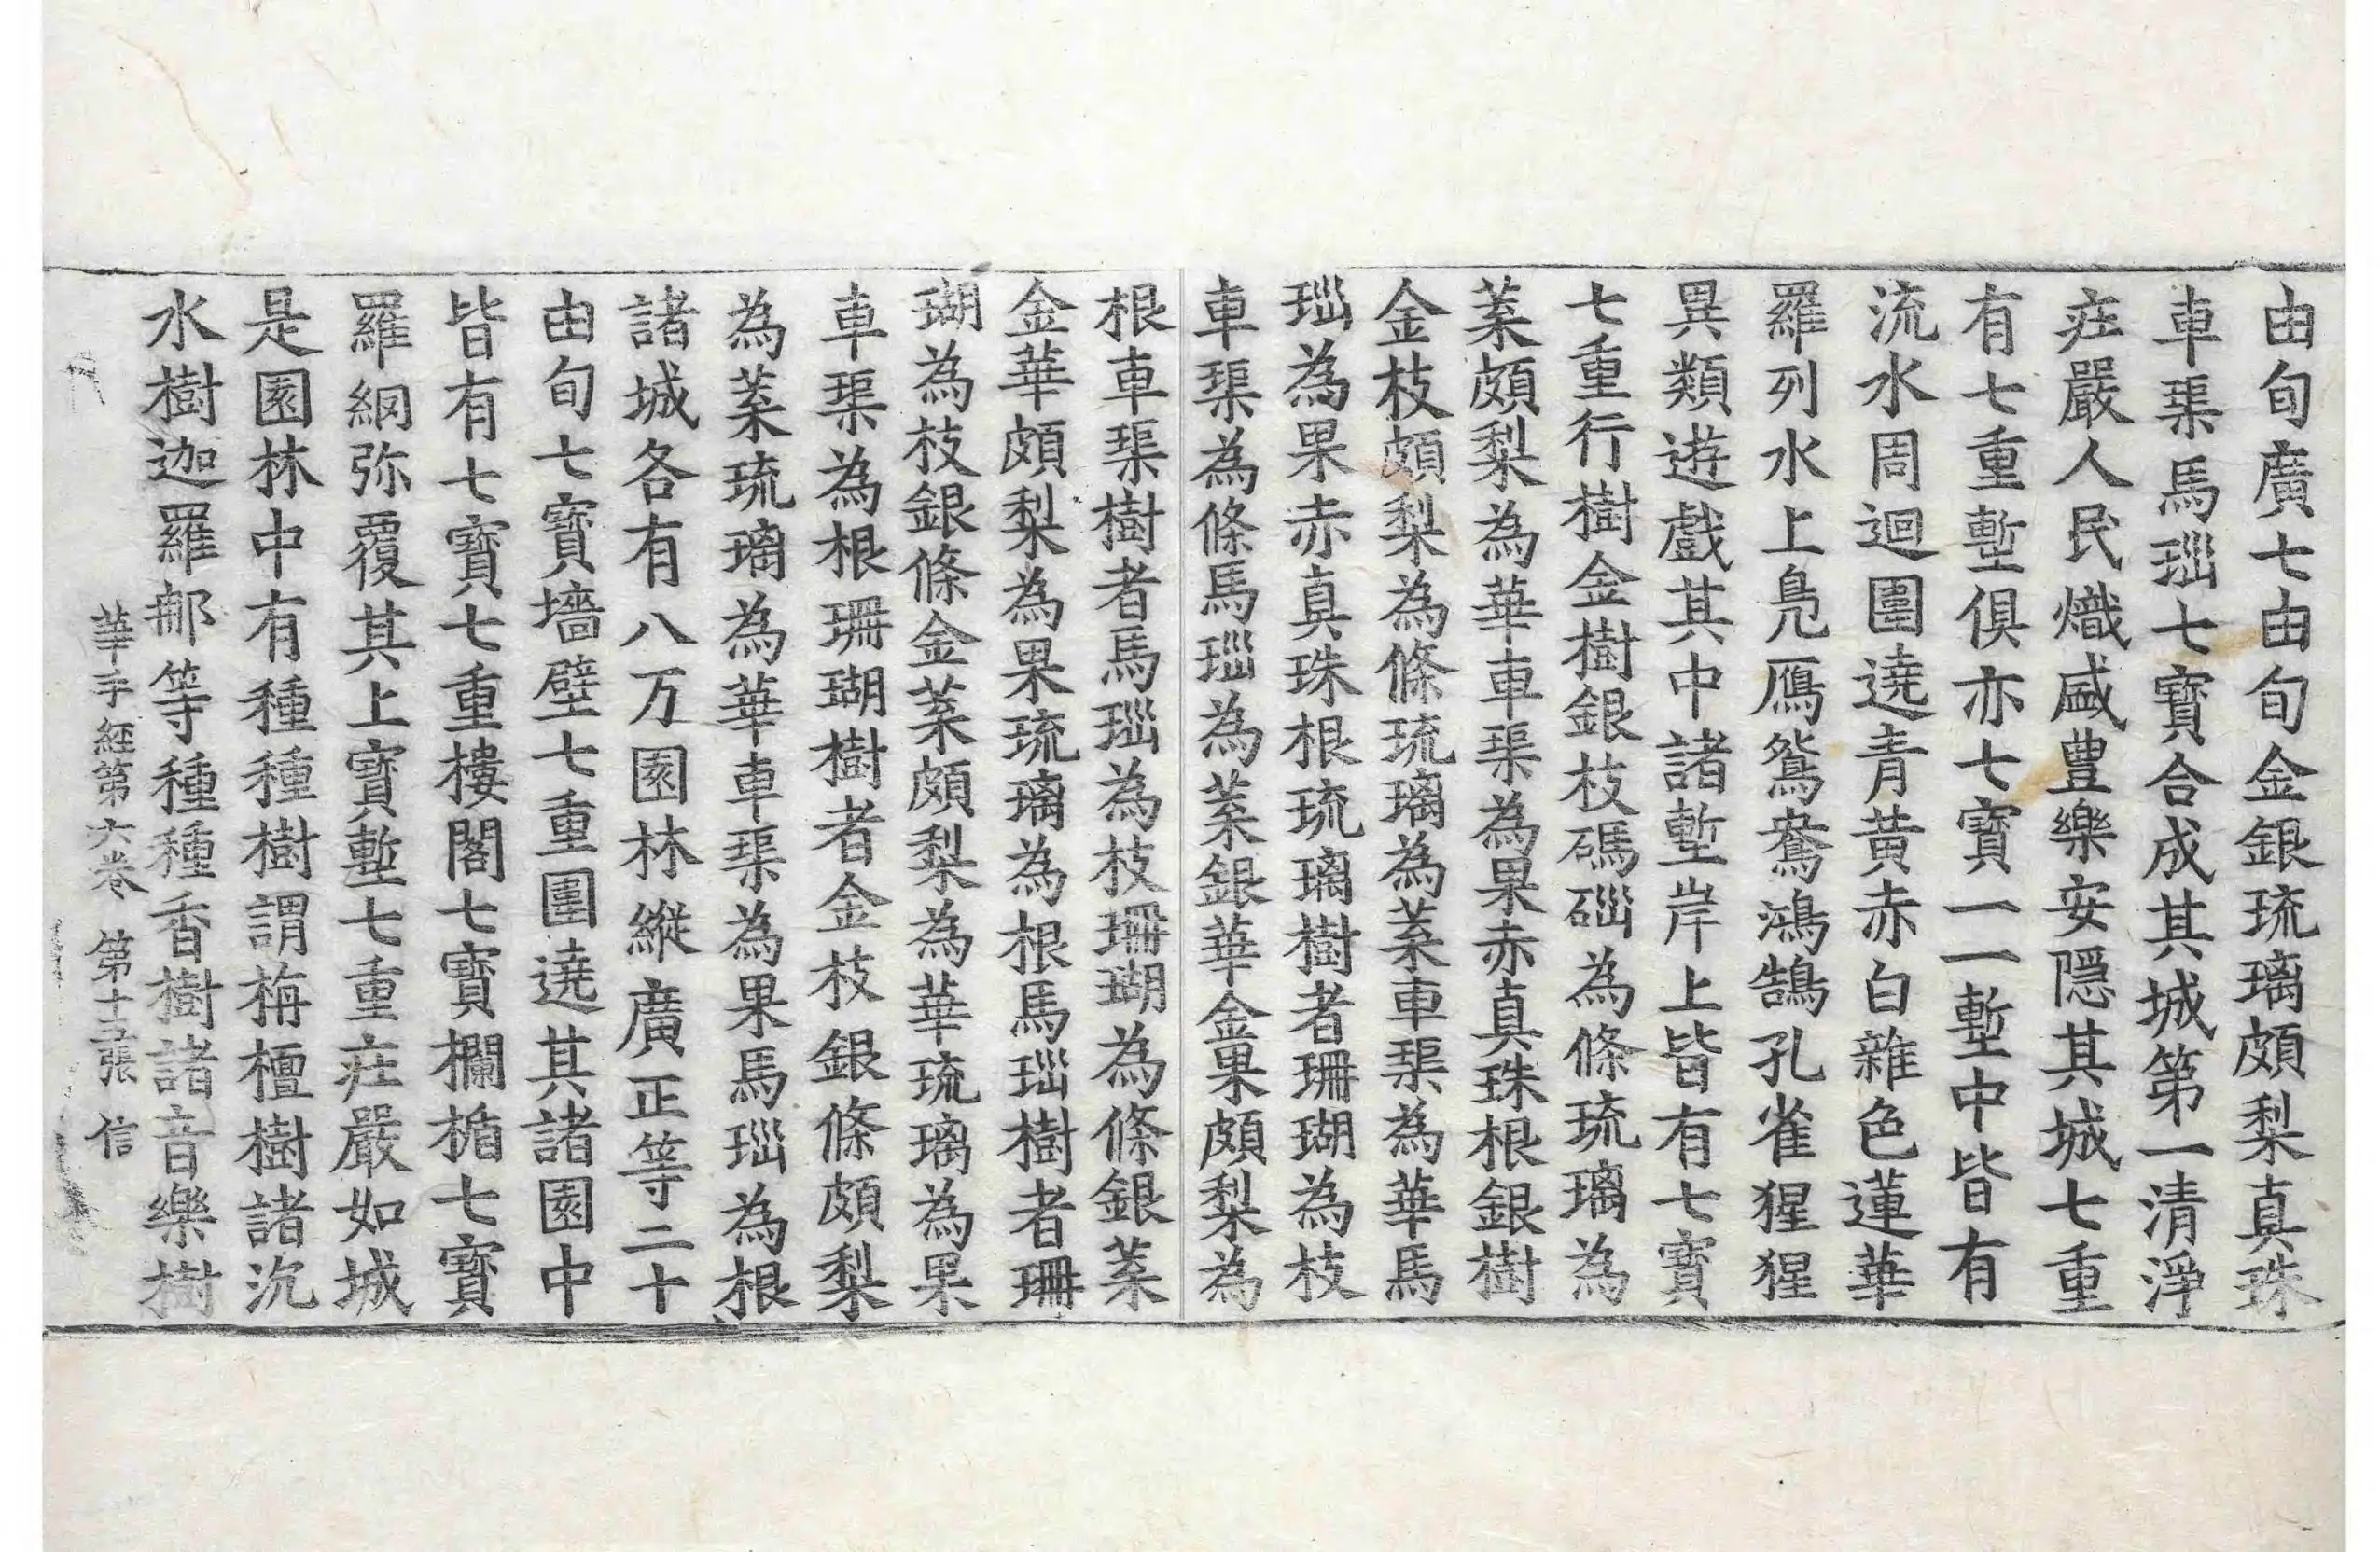 由旬廣七由旬金銀琉璃頗梨真珠
車璖馬瑙七寶合成其城第一清淨
庄嚴人民熾盛豊樂安隱其城七重
有七重塹俱亦七寶一一塹中皆有
流水周迴圍遶青黃赤白雜色蓮華
羅列水上鳬鴈鴛鴦鴻鵠孔雀猩猩
異類遊戲其中諸塹岸上皆有七寶
七重行樹金樹銀枝碼碯為條琉璃為
葉頗梨為華車璖為果赤真珠根銀樹
金枝頗梨為條琉璃為葉車璖為華馬
瑙為果赤真珠根琉璃樹者珊瑚為枝
車璖為條馬瑙為葉銀華金果頗梨為
根車璖樹者馬瑙為枝珊瑚為條銀葉
金華頗梨為果琉璃為根馬瑙樹者珊
瑚為枝銀條金葉頗梨為華琉璃為果
車璖為根珊瑚樹者金枝銀條頗梨
為葉琉璃為華車璖為果馬瑙為根
諸城各有八万園林縱廣正等二十
由旬七寶墻壁七重圍遶其諸園中
皆有七寶七重樓閣七寶欄楯七寶
羅網弥覆其上寶塹七重庄嚴如城
是園林中有種種樹謂栴檀樹諸沉
水樹迦羅那等種種香樹諸音樂樹
華手經第六卷 第十五張 信